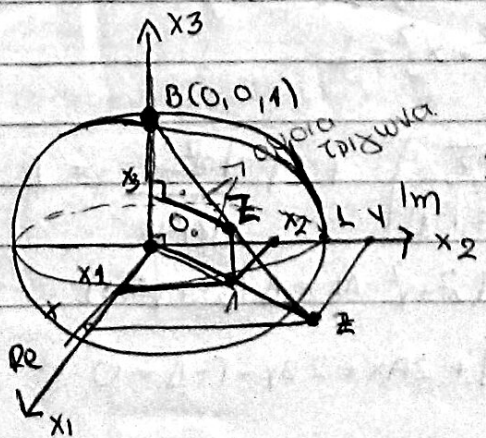 x3
B(0,0,1)
όμοια
τρίγωνα
x3
O
x2 L y Im
x2
x1
x
z
Re
x1